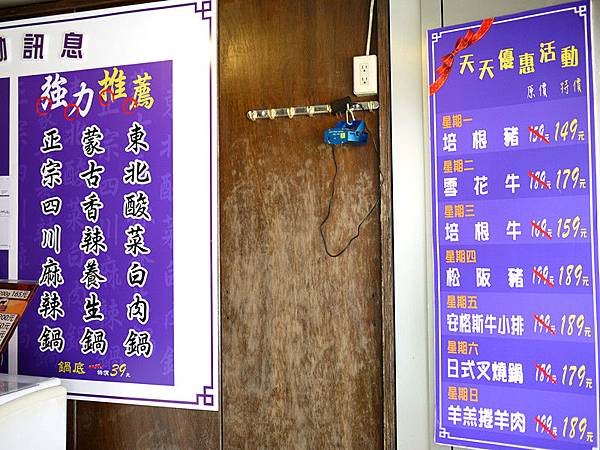 訊息
強力推薦
東北酸菜白肉鍋
蒙古香辣養生鍋
正宗四川麻辣鍋
鍋底 特價39元
天天優惠活動
原價 特價
星期一
培根豬 159元 149元
星期二
雪花牛 189元 179元
星期三
培根牛 169元 159元
星期四
松阪豬 199元 189元
星期五
安格斯牛小排 199元 189元
星期六
日式叉燒鍋 189元 179元
星期日
羊羔捲羊肉 199元 189元